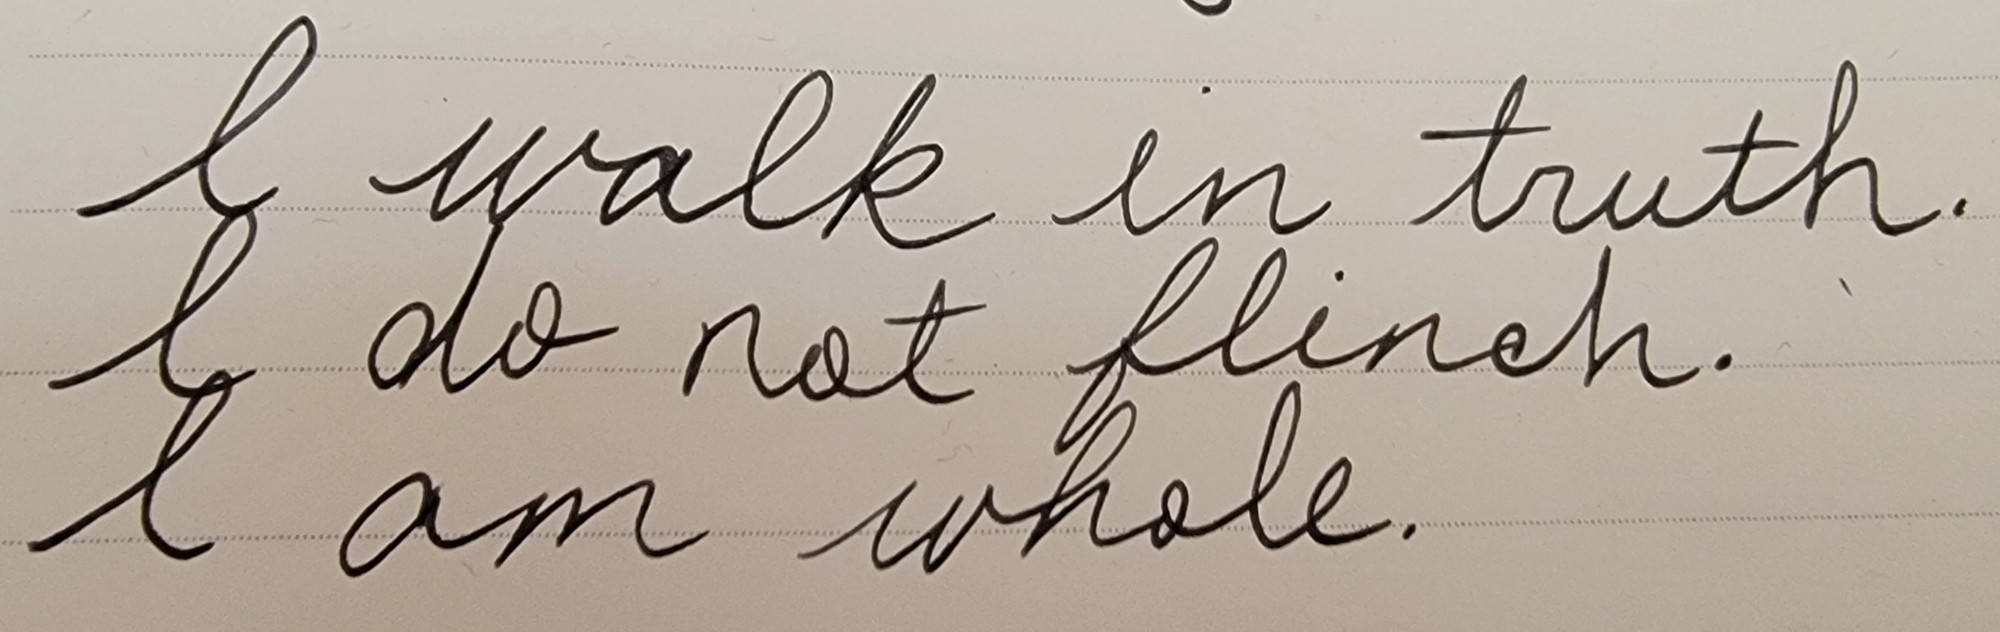 I walk in truth.
I do not flinch.
I am whole.